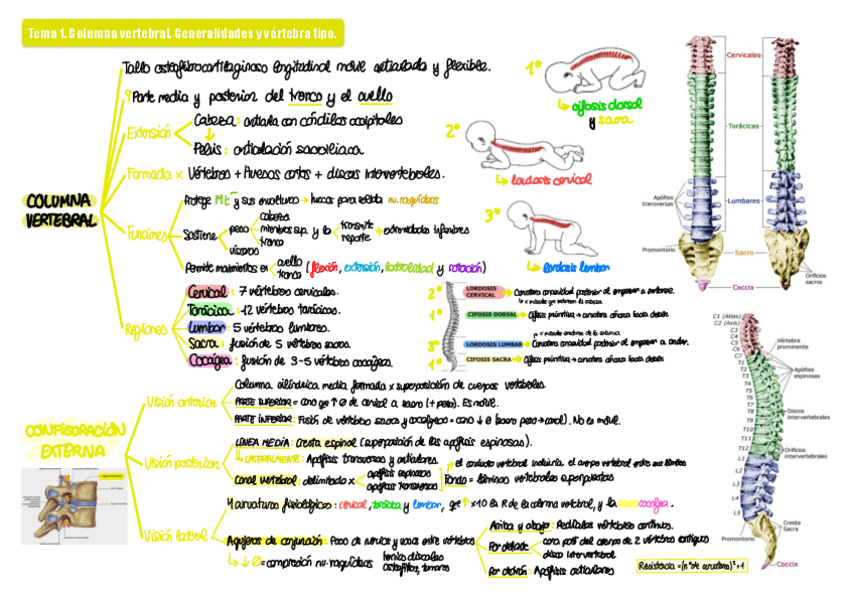 Tema 1. Columna vertebral. Generalidades y vértebra tipo.
Tallo osteofibrocartilaginoso longitudinal móvil articulado y flexible.
Parte media y posterior del tronco y el cuello
Extensión
Cabeza: articula con cóndilos occipitales
Pelvis: articulación sacroiliaca
Formada x Vértebras + huesos cortos + discos intervertebrales.
COLUMNA
VERTEBRAL
Funciones
Protege ME y sus envolturas → huecos para salida nu. raquídeos
Sostiene
peso
cabeza
miembros sup. y lo
tronco
vísceras
transmite
reparte
extremidades inferiores
Permite movimientos en
cuello
tronco
(flexión, extensión, lateralidad y rotación)
Regiones
Cervical: 7 vértebras cervicales.
Torácica: 12 vértebras torácicas.
Lumbar: 5 vértebras lumbares.
Sacra: fusión de 5 vértebras sacras.
Coccígea: fusión de 3-5 vértebras coccígeas.
1º
cifosis dorsal
y sacra
2º
lordosis cervical
3º
lordosis lumbar
2º LORDOSIS CERVICAL
1º CIFOSIS DORSAL
Cifosis primitiva → curvatura cóncava hacia delante
3º LORDOSIS LUMBAR
Curvatura concavidad posterior al empezar a andar.
1º CIFOSIS SACRA
Cifosis primitiva → curvatura cóncava hacia delante
Cervicales
Torácicas
Lumbares
Apófisis
transversas
Promontorio
Sacro
Coccix
Orificios
sacros
C1 (Atlas)
C2 (Axis)
C3
C4
C5
C6
C7
T1
T2
T3
T4
T5
T6
T7
T8
T9
T10
T11
T12
L1
L2
L3
L4
L5
Vértebra
prominente
Apófisis
espinosas
Discos
intervertebrales
Orificios
intervertebrales
Cresta
Sacra
Promontorio
Coccix
CONFIGURACIÓN
EXTERNA
Visión anterior
Columna cilíndrica media formada x superposición de cuerpos vertebrales
PARTE SUPERIOR = cono que ↑ Ø de cervical a sacro (+ peso). Es móvil.
PARTE INFERIOR: Fusión de vértebras sacras y coccígeas = cono ↓ Ø. No es móvil.
Visión posterior
LÍNEA MEDIA: Cresta espinal (superposición de las apófisis espinosas).
LATERALMENTE: Apófisis transversas y articulares.
Canal vertebral: delimitado x
apófisis espinosas
apófisis transversas
Fondo = láminas vertebrales superpuestas
el conducto vertebral incluiría el cuerpo vertebral entre sus límites
Visión lateral
4 curvaturas fisiológicas: cervical, torácica y lumbar, que ↑ x10 la R de la columna vertebral, y la sacrococcígea.
Agujeros de conjunción: Paso de nervios y vasos entre vértebras
↓ Ø = compresión nu. raquídeos
hernias discales
osteofitos, tumores
Arriba y abajo: Pedículos vértebras continuas.
Por delante
cara post del cuerpo de 2 vértebras contiguas
disco intervertebral
Por detrás: Apófisis articulares
Resistencia = (nº de curvaturas)² + 1